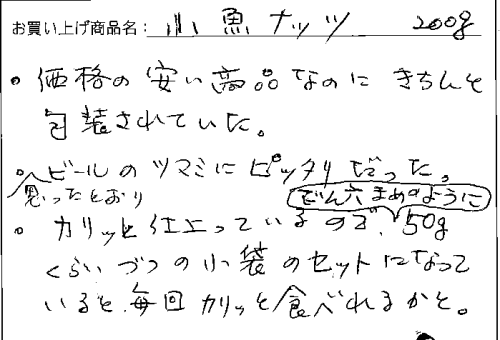 お買い上げ商品名: 小魚ナッツ 200g
・価格の安い商品なのにきちんと
包装されていた。
・ビールのツマミにピッタリだった。
思ったとおり
でん六まめのように
・カリッと仕上っているので、50g
くらいづつの小袋のセットになって
いると毎回カリッと食べれるかと。